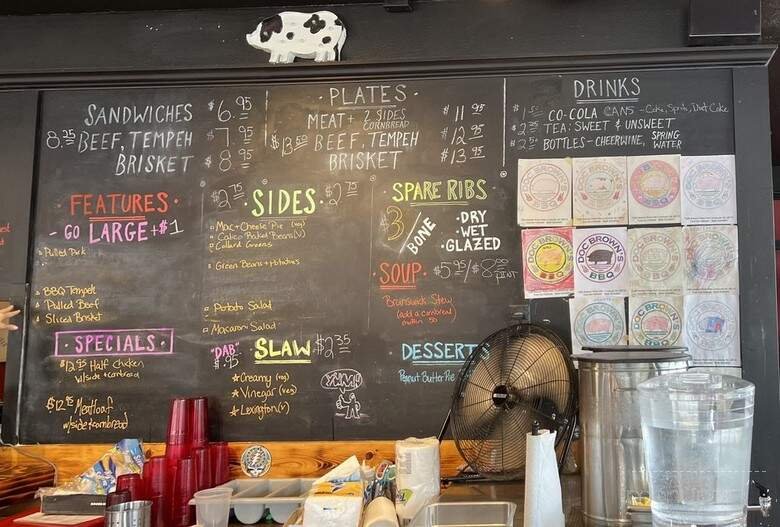 SANDWICHES $6.95
8.25 BEEF, TEMPEH $7.95
BRISKET $8.95
PLATES
MEAT + 2 SIDES $11 95
CORNBREAD
$13.50 BEEF, TEMPEH $12 95
BRISKET $13.95
DRINKS
CO-COLA CANS - Coke, Sprite, Diet Coke
TEA: SWEET & UNSWEET
BOTTLES - CHEERWINE, SPRING WATER
FEATURES
- GO LARGE +$1
Pulled Pork
BBQ Tempeh
Pulled Beef
Sliced Brisket
SPECIALS
$12.95 Half Chicken
w/side + cornbread
$12.95 Meatloaf
w/side + cornbread
$2.75 SIDES $2.75
Mac + Cheese Pie (veg)
Calico Baked Beans (V)
Collard Greens
Green Beans + potatoes
Potato Salad
Macaroni Salad
"DAB" $.95
SLAW $2.35
Creamy (veg)
Vinegar (veg)
Lexington (V)
YUM!
SPARE RIBS
$3/BONE
DRY
WET
GLAZED
SOUP $5.95/$8.00 PINT
Brunswick Stew
(add a cornbread
muffin .50
DESSERTS
Peanut Butter Pie
DOC BROWN'S
BBQ
DOC BROWN'S
BBQ